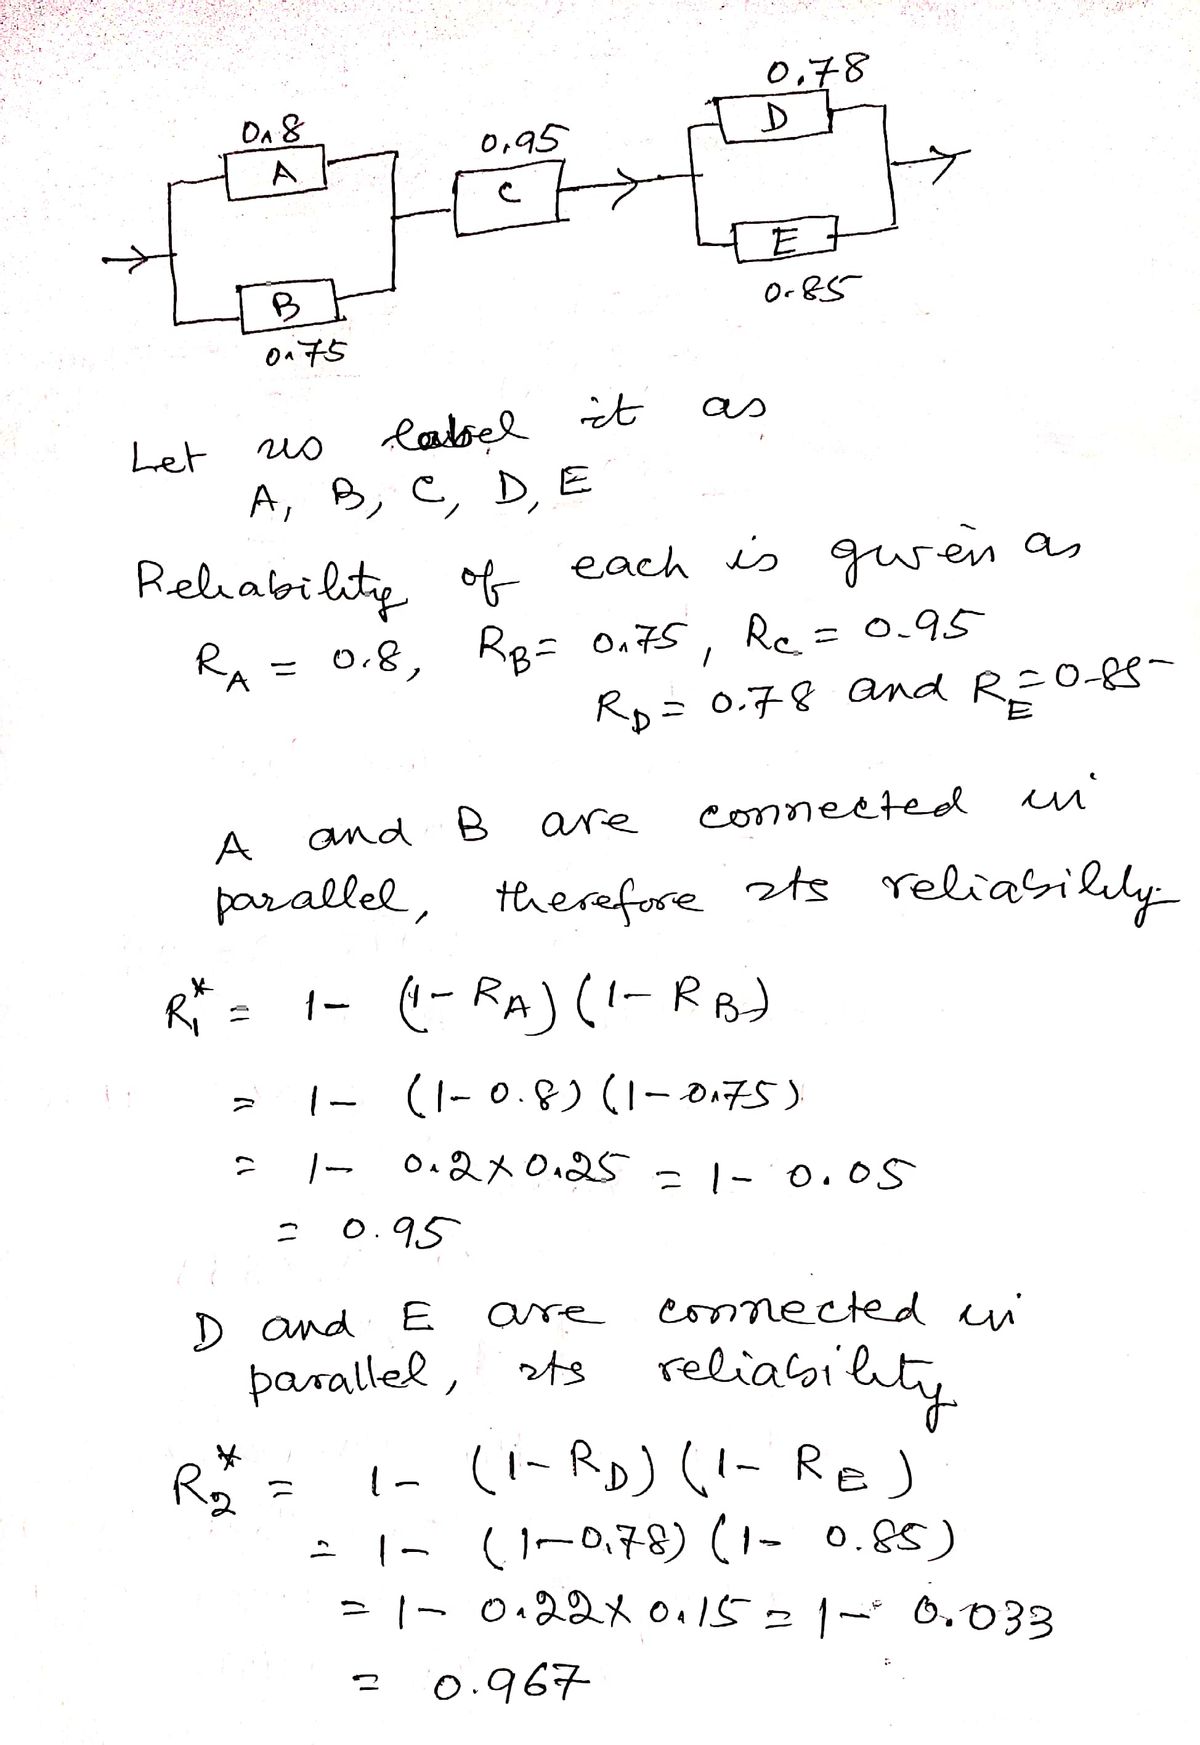 0.78
D
0.8
A
0.95
C
E
0.85
B
0.75
Let us label it as
A, B, C, D, E
Reliability of each is given as
R_A = 0.8, R_B = 0.75, R_C = 0.95
R_D = 0.78 and R_E = 0.85
A and B are connected in
parallel, therefore its reliability
R₁* = 1 - (1 - R_A) (1 - R_B)
= 1 - (1 - 0.8) (1 - 0.75)
= 1 - 0.2 × 0.25 = 1 - 0.05
= 0.95
D and E are connected in
parallel, its reliability
R₂* = 1 - (1 - R_D) (1 - R_E)
= 1 - (1 - 0.78) (1 - 0.85)
= 1 - 0.22 × 0.15 = 1 - 0.033
= 0.967